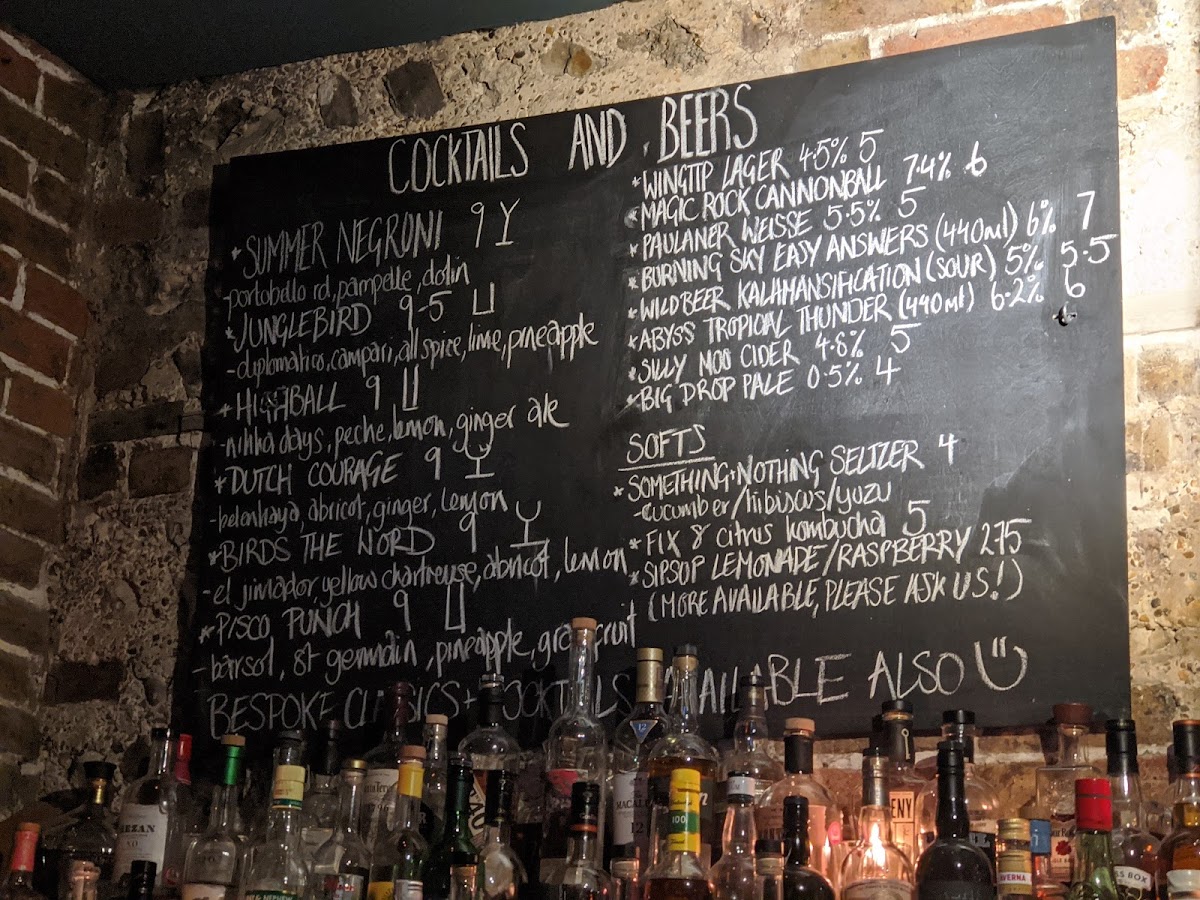 COCKTAILS AND BEERS
*SUMMER NEGRONI 9
-portobello rd, pampelle, dolin
*JUNGLEBIRD 9-5
-diplomatico, campari, allspice, lime, pineapple
*HIGHBALL 9
-nikka days, peche, lemon, ginger ale
*DUTCH COURAGE 9
abricot, ginger, lemon
*BIRDS THE WORD 9
-el jimador, yellow chartreuse, abricot, lemon
*PISCO PUNCH 9
-barsol, st germain, pineapple, grapefruit
BESPOKE CLASSICS + COCKTAILS AVAILABLE ALSO
*WINGTIP LAGER 4.5% 5
*MAGIC ROCK CANNONBALL 7.4% 6
*PAULANER WEISSE 5.5% 5
*BURNING SKY EASY ANSWERS (440ml) 6% 7
*WILDBEER KALAMANSIFICATION (SOUR) 5% 5.5
*ABYSS TROPICAL THUNDER (440ml) 6.2% 6
*SILLY MOO CIDER 4.8% 5
*BIG DROP PALE 0.5% 4
SOFTS
*SOMETHING+NOTHING SELTZER 4
-cucumber/hibiscus/yuzu
*FIX 8 citrus kombucha 5
*SIPSOP LEMONADE/RASPBERRY 2.75
(MORE AVAILABLE, PLEASE ASK US!)
MACALLAN
12
100
AVERNA